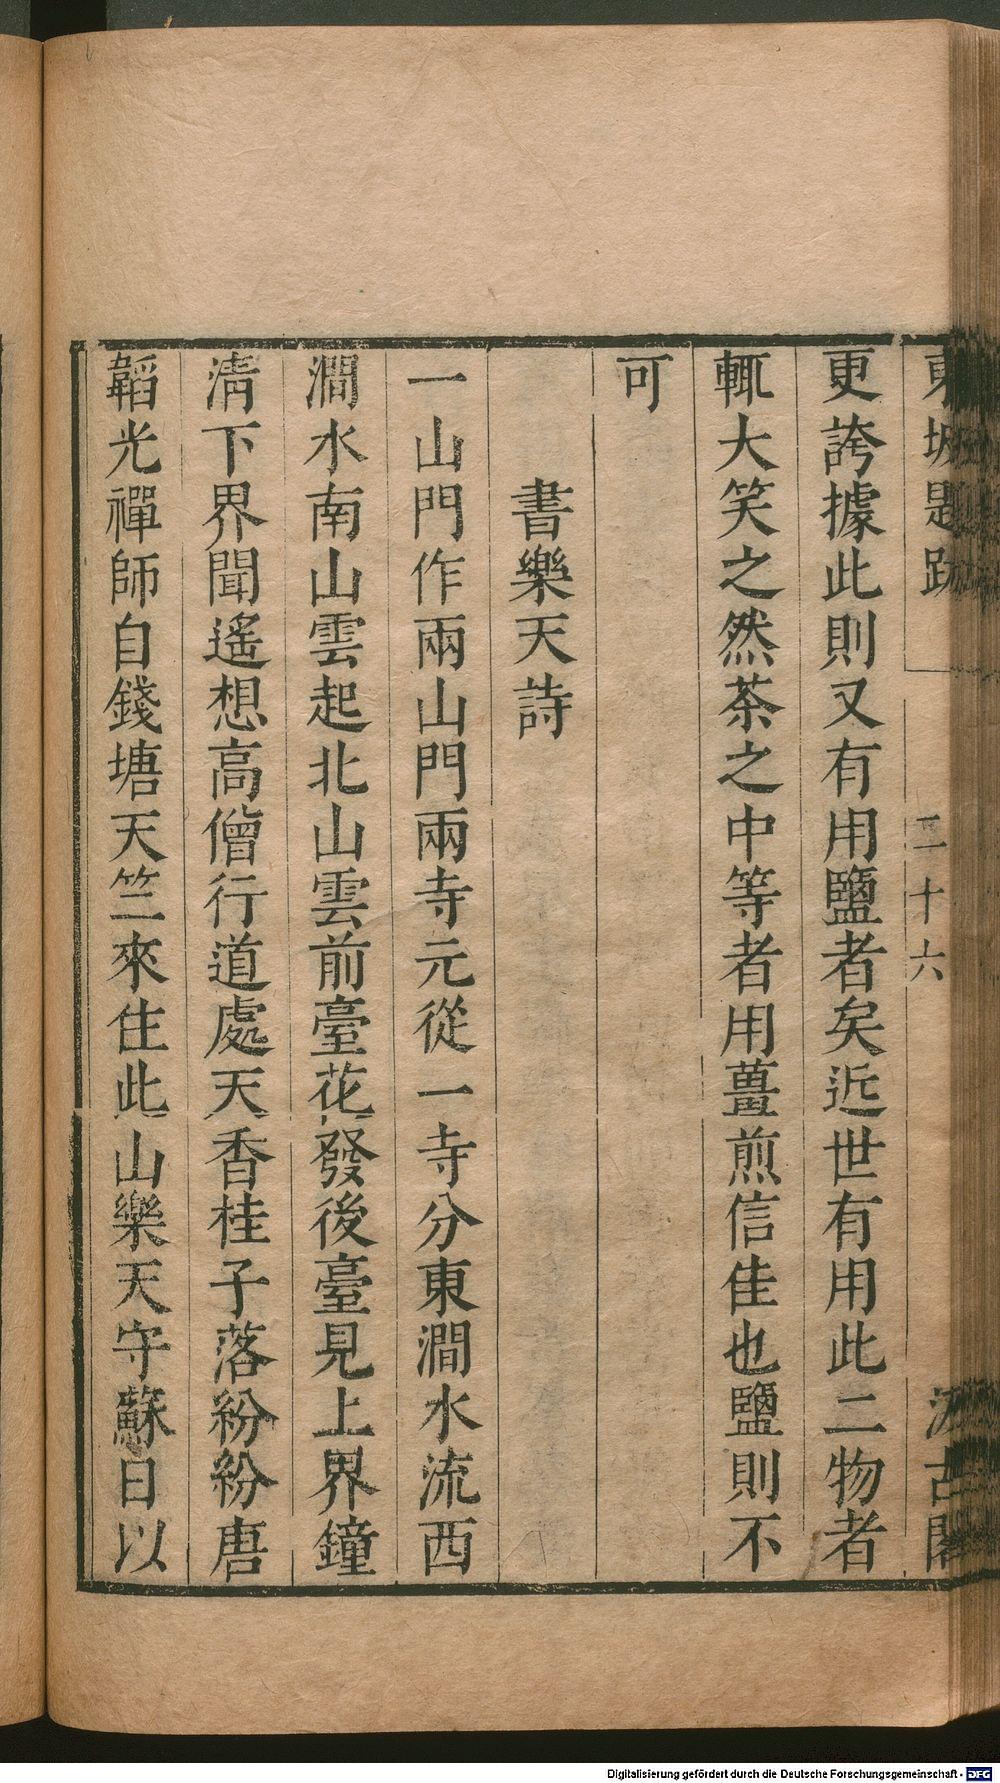 東坡題跋 二十六 汲古閣
更誇據此則又有用鹽者矣近世有用此二物者
輒大笑之然茶之中等者用薑煎信佳也鹽則不
可
書樂天詩
一山門作兩山門兩寺元從一寺分東澗水流西
澗水南山雲起北山雲前臺花發後臺見上界鐘
清下界聞遙想高僧行道處天香桂子落紛紛唐
韜光禪師自錢塘天竺來住此山樂天守蘇日以
Digitalisierung gefördert durch die Deutsche Forschungsgemeinschaft - DFG